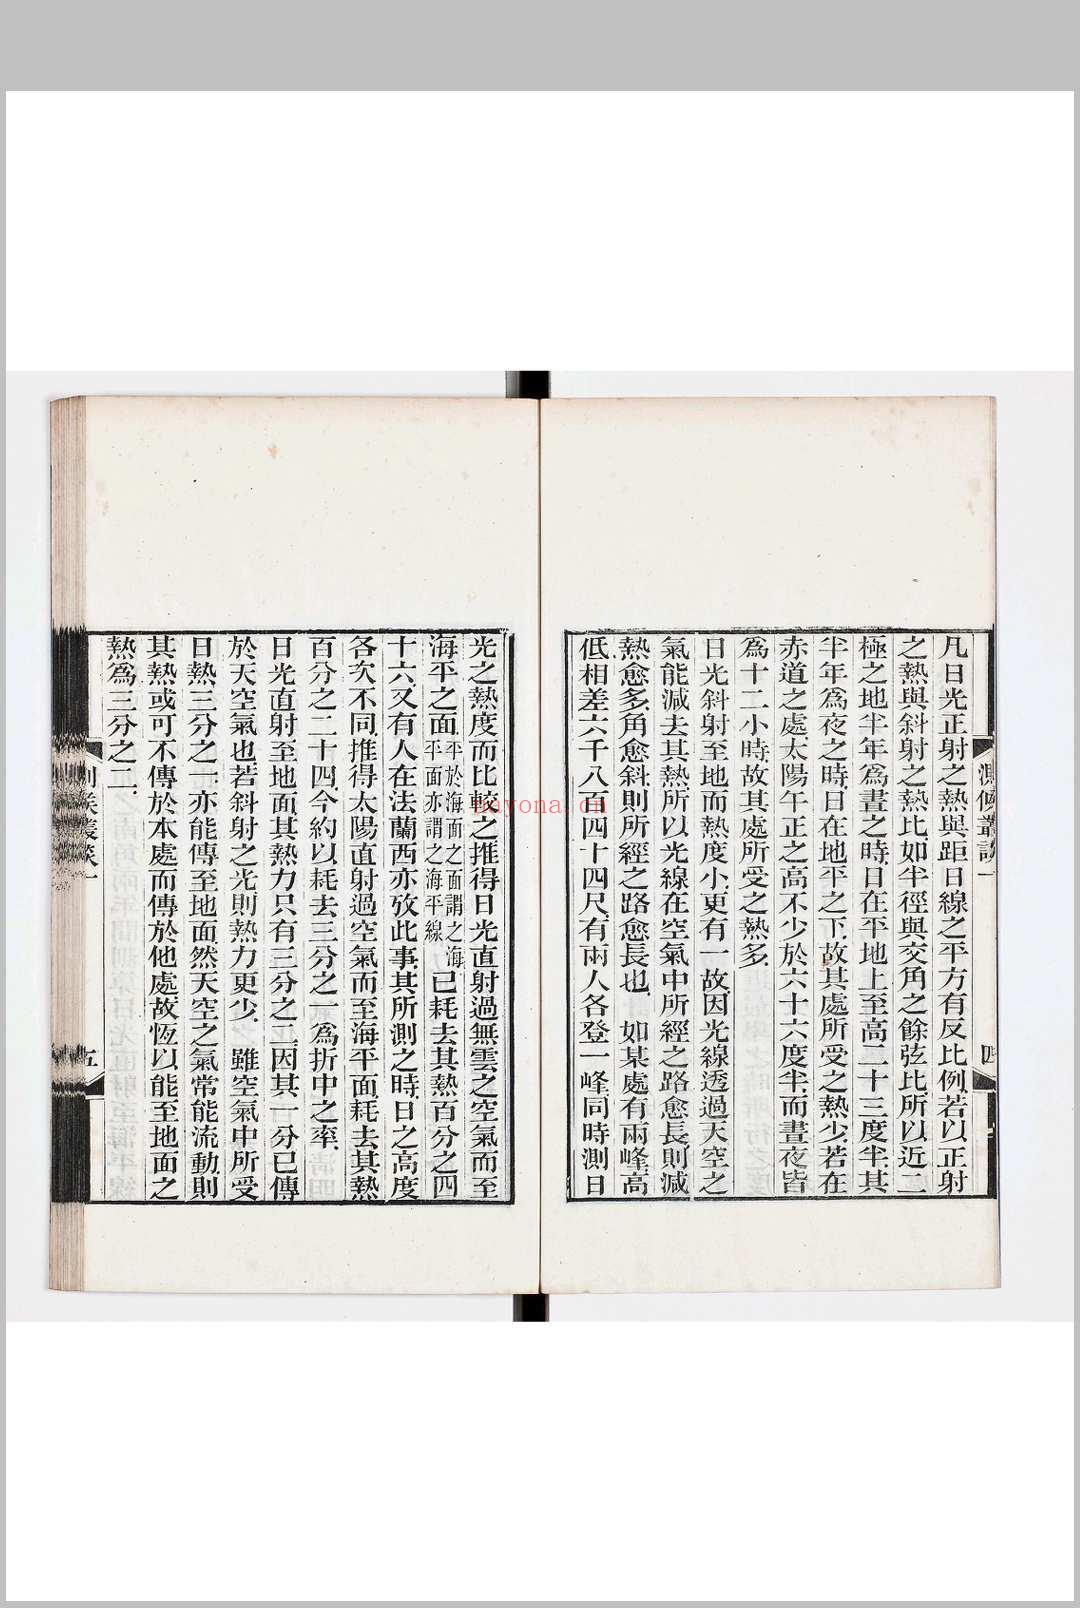 凡日光正射之熱與距日線之平方有反比例若以正射
之熱與斜射之熱比如半徑與交角之餘弦比所以近二
極之地半年爲晝之時日在平地上至高二十三度半其
半年爲夜之時日在地平之下故其處所受之熱少若在
赤道之處太陽午正之高不少於六十六度半而晝夜皆
爲十二小時故其處所受之熱多
日光斜射至地而熱度小更有一故因光線透過天空之
氣能減去其熱所以光線在空氣中所經之路愈長則減
熱愈多角愈斜則所經之路愈長也 如某處有兩峰高
低相差六千八百四十四尺有兩人各登一峰同時測日
測候叢談一
四
光之熱度而比較之推得日光直射過無雲之空氣而至
海平之面平於海面之面謂之海平面亦謂之海平線已耗去其熱百分之四
十六又有人在法蘭西亦攷此事其所測之時日之高度
各次不同推得太陽直射過空氣而至海平面耗去其熱
百分之二十四今約以耗去三分之一爲折中之率
日光直射至地面其熱力只有三分之二因其一分已傳
於天空氣也若斜射之光則熱力更少 雖空氣中所受
日熱三分之一亦能傳至地面然天空之氣常能流動則
其熱或可不傳於本處而傳於他處故恆以能至地面之
熱爲三分之二
測候叢談一
五
nayona.cn